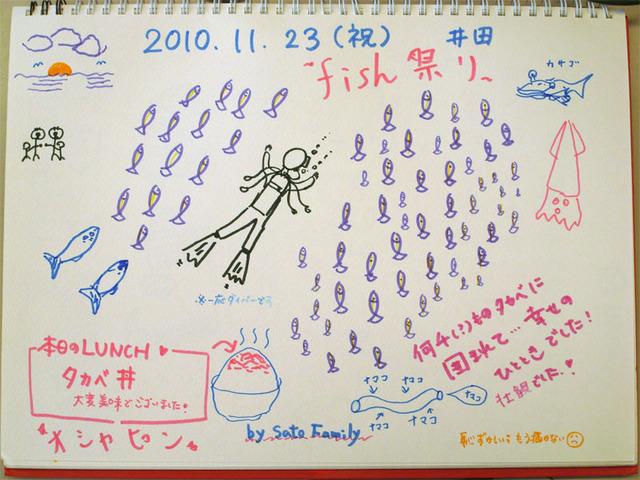 2010.11.23(祝) 井田
~fish 祭り~
カサゴ
※一応ダイバーです
何千(いつもの)タカベに
囲まれて…幸せの
ひとときでした!
壮観でした。♥
本日のLUNCH ♥
タカベ丼
大変美味でございました!
オシャピン
by Sato Family
ナマコ
ナマコ
ナマコ
ナマコ
ナマコ
恥ずかしい もう描かない